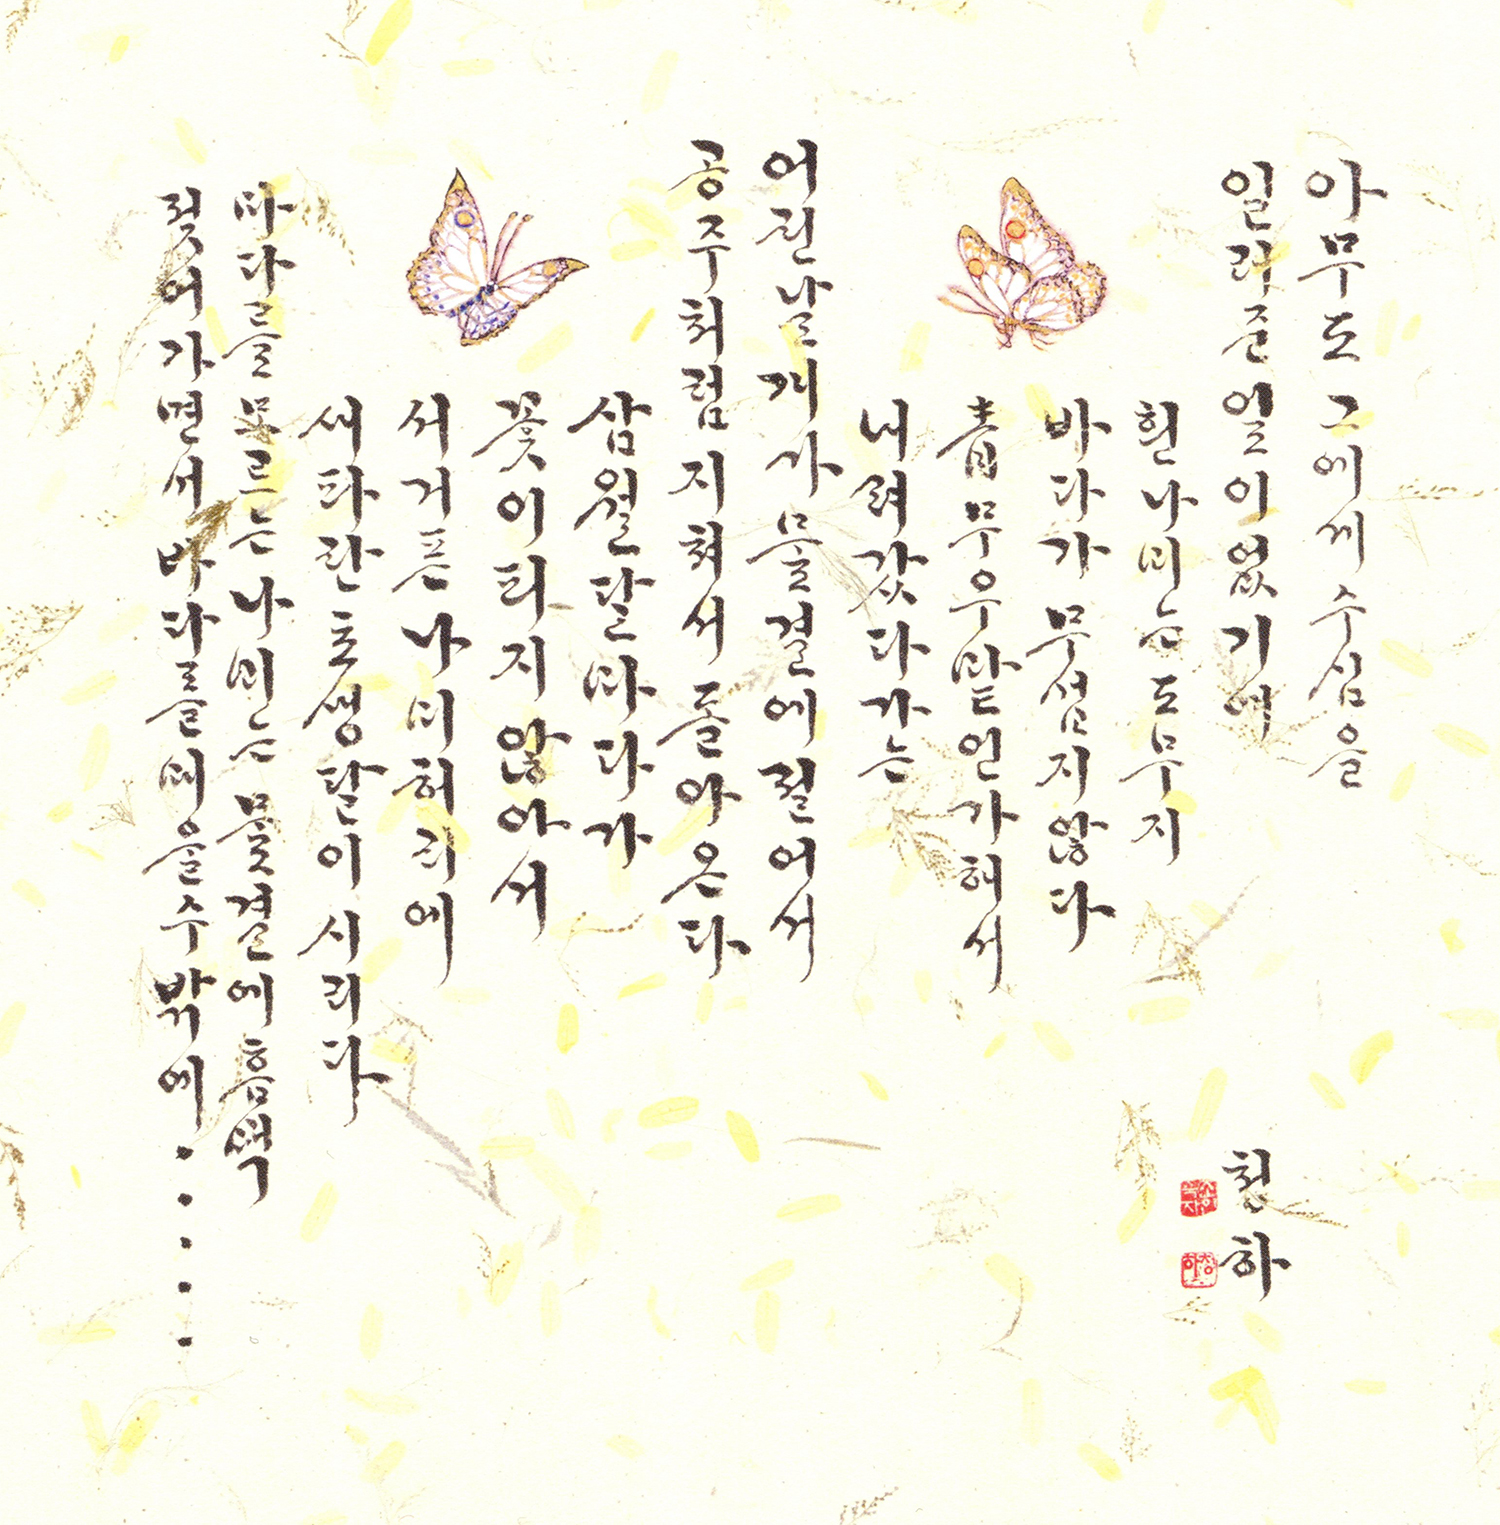 아무도 그에게 수심을
일러준 일이 없기에
흰나비는 도무지
바다가 무섭지 않다
靑무우밭인가 해서
내려갔다가는
어린 날개가 물결에 절어서
공주처럼 지쳐서 돌아온다
삼월달 바다가
꽃이 피지 않아서
서거픈 나비 허리에
새파란 초생달이 시리다
바다를 모르는 나비는 물결에 흠뻑
젖어가면서 바다를 배울수밖에.....
청하